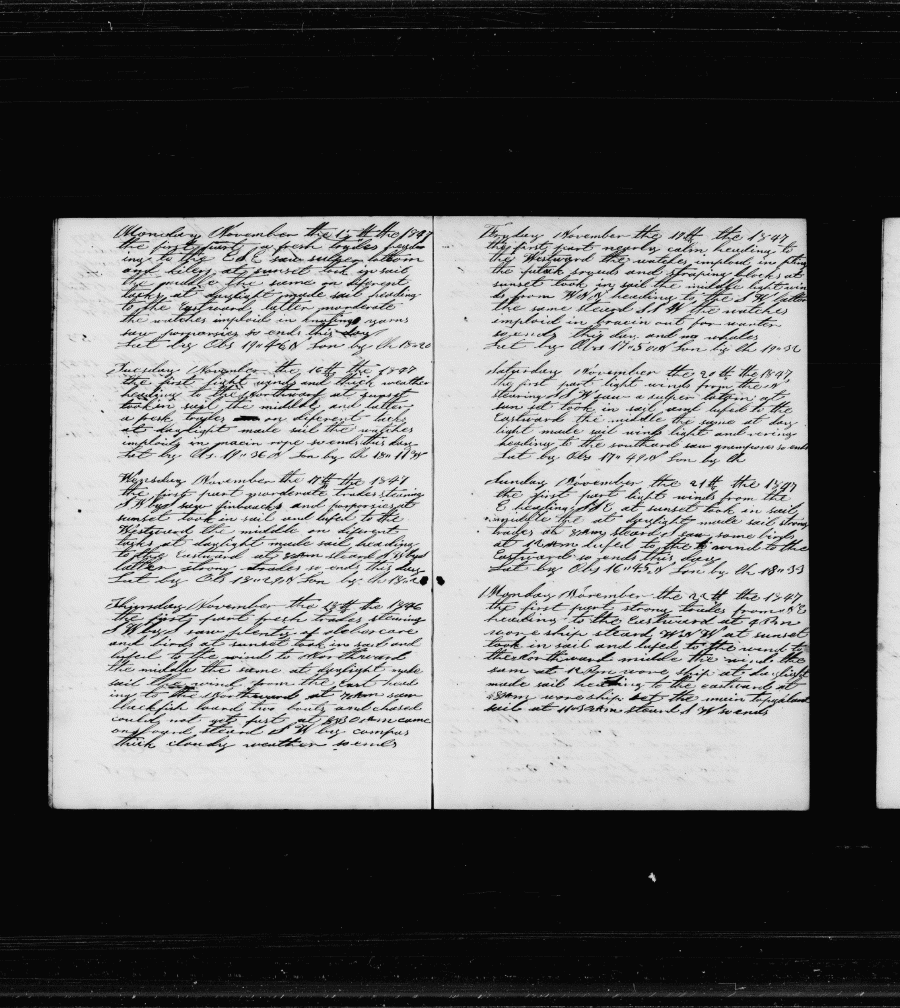 Monday November the 15th the 1847
the first part a fresh trades head
ing to the E S E saw sulpher botom
and kilers at sunset took in sail
the middle the same on diferent
tacks at daylight made sail heading
to the Eastward latter moderate
the watches imploid in knoting yarns
saw porpoises so ends this day
Lat by Obs 19"46 S Lon by Ch 18"20
Tuesday November the 16th the 1847
the first light winds and thick weather
heading to the Northward at sunset
took in sail the middle and latter
a fresh trades on diferent tacks
at daylight made sail the watches
imploid in rope so ends this day
Lat by Obs 19"36 S Lon by Ch 18"
Wensday November the 17th the 1847
the first part moderate trades stearing
S W by S saw finbacks and porpoises at
sunset took in sail and lufed to the
Westward the middle on diferent
tacks at daylight made sail heading
to the Eastward at 8 am steard
latter strong trades so ends this day
Lat by Obs 18"29 S Lon by Ch 18"
Thursday November the 18th the 1846
the first part fresh trades stearing
S W by saw plenty of
and birds at sunset took in sail and
lufed to the wind to Northward
the middle the same at daylight made
sail the wind from the East head
ing to the Northward at 7 am saw
blackfish lowed two boats and chased
could not get fast at 8"30 am came
on board steard S W by compas
thick cloudy weather so ends
Fryday November the 19th the 1847
the first part nearly calm heading to
the Westward the watches imploid in fiting
the futak srouds and straping blocks at
sunset took in sail the middle light win
ds from heading to the S W latter
the same steard S S W the watches
imploid in out for
so ends this day and no whales
Lat by Obs 17"50 S Lon by Ch 19"32
Saturday November the 20th the 1847
the first part light winds from the
stearing S W saw a sulper botom at
sun set took in sail and lufed to the
Eastward the middle the same at day
light made sail winds light and
heading to the southard saw grampuses so ends
Lat by Obs 17"49 S Lon by Ch
Sunday November the 21th the 1847
the first part light winds from the
E heading S S E at sunset took in sail
middle at daylight made sail strong
trades at 8 am steard saw some birds
at am lufed to the wind to the
Eastward so ends this day
Lat by Obs 16"45 S Lon by Ch 18"33
Monday November the 22th the 1847
the first part strong trades from
heading to the Eastward at 4 Pm
wore ship steard at sunset
took in sail and lufed to the wind to
the Northward middle the wind the
sam at wore ship at daylight
made sail heading to the eastward at
8 am wore ship set the main topgalant
sail at steard S W so ends